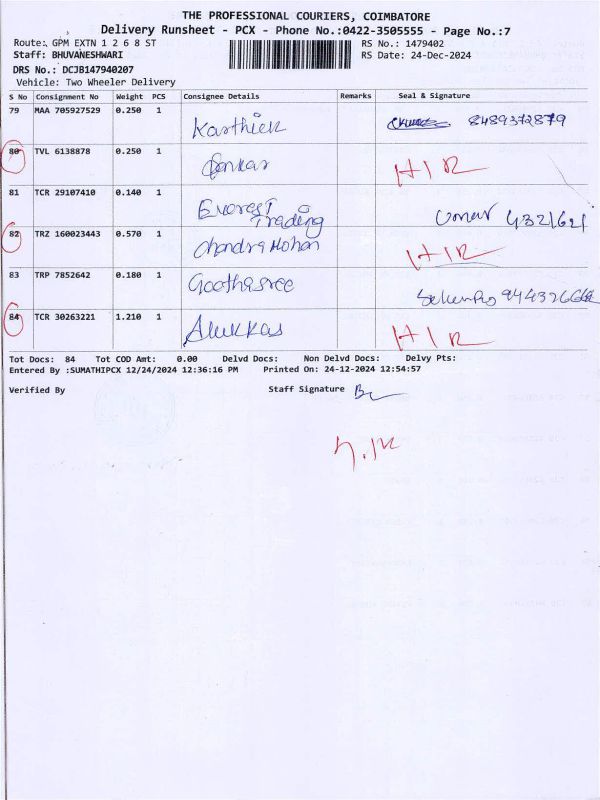 THE PROFESSIONAL COURIERS, COIMBATORE
Delivery Runsheet - PCX - Phone No.:0422-3505555 - Page No.:7
Route: GPM EXTN 1 2 6 8 ST RS No.: 1479402
Staff: BHUVANESHWARI RS Date: 24-Dec-2024
DRS No.: DCJB147940207
Vehicle: Two Wheeler Delivery
S No Consignment No Weight PCS Consignee Details Remarks Seal & Signature
79 MAA 705927529 0.250 1 Karthick 8489372879
80 TVL 6138878 0.250 1 HIR
81 TCR 29107410 0.140 1 Everest Trading Umar 4321621
82 TRZ 160023443 0.570 1 Chandra Mohan HIR
83 TRP 7852642 0.180 1 Geethasree
84 TCR 30263221 1.210 1 Alukkas HIR
Tot Docs: 84 Tot COD Amt: 0.00 Delvd Docs: Non Delvd Docs: Delvy Pts:
Entered By :SUMATHIPCX 12/24/2024 12:36:16 PM Printed On: 24-12-2024 12:54:57
Verified By Staff Signature